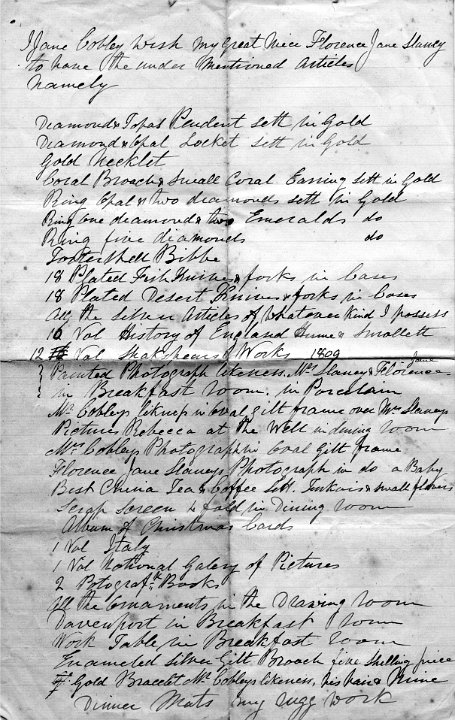 I Jane Cobley Wish my Great Niece Florence Jane Slaney
to have the under Mentioned Articles
Namely
Diamond & Topas Pendent sett in Gold
Diamond & Opal Locket sett in Gold
Gold Necklet
Coral Brooch & Small Coral Earring sett in Gold
Ring Opal & two diamonds sett in Gold
Ring One diamond & two Emeralds do
Ring five diamonds do
18 Plated Fish Knives & forks in Cases
18 Plated Desert Knives & forks in Cases
All the silver Articles of whatever kind I possess
10 Vol History of England Hume & Smollett
12 Vol Shakspeares Works 1809
Painted Photograph likeness Mrs Slaney & Florence Jane
in Breakfast room, in Porcelain
Mr Cobleys likness in oval gilt frame over Mrs Slaneys
Picture Rebecca at the Well in dining room
Mrs Cobleys Photograph in Oval Gilt frame
Florence Jane Slaneys Photograph in do a Baby
Best China Tea & Coffee Sett & small flowers
Scrap Screen 4 fold in Dining Room
Album of Christmas Cards
1 Vol Italy
1 Vol National Galery of Pictures
2 Books
All the Ornaments in the Drawing room
Davenport in Breakfast room
Work Table in Breakfast room
Enameled silver Gilt Brooch five Shilling piece
Gold Bracelet Mr Cobleys likeness, his hair &
Dinner Mats my rugg work